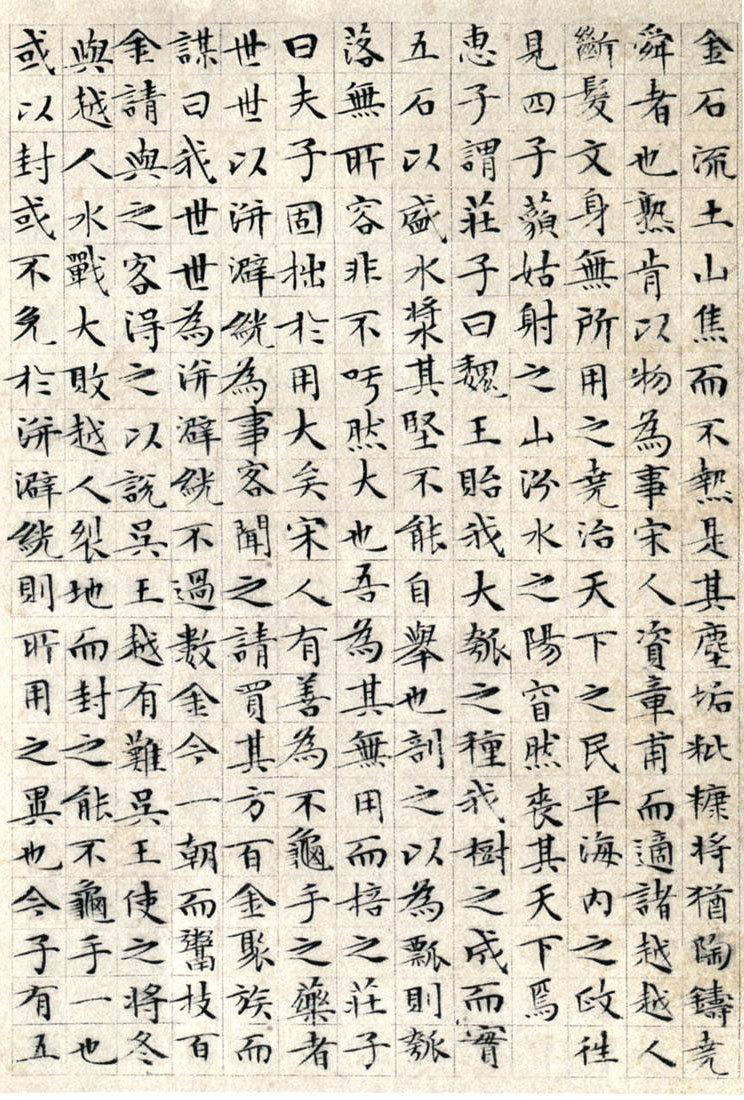 金石流土山焦而不熱是其塵垢粃糠將猶陶鑄堯
舜者也熟肯以物為事宋人資章甫而適諸越越人
斷髮文身無所用之堯治天下之民平海內之政往
見四子藐姑射之山汾水之陽窅然喪其天下焉
惠子謂莊子曰魏王貽我大瓠之種我樹之成而實
五石以盛水漿其堅不能自舉也剖之以為瓢則瓠
落無所容非不呺然大也吾為其無用而掊之莊子
曰夫子固拙於用大矣宋人有善為不龜手之藥者
世世以洴澼絖為事客聞之請買其方百金聚族而
謀曰我世世為洴澼絖不過數金今一朝而鬻技百
金請與之客得之以說吳王越有難吳王使之將冬
與越人水戰大敗越人裂地而封之能不龜手一也
或以封或不免於洴澼絖則所用之異也今子有五